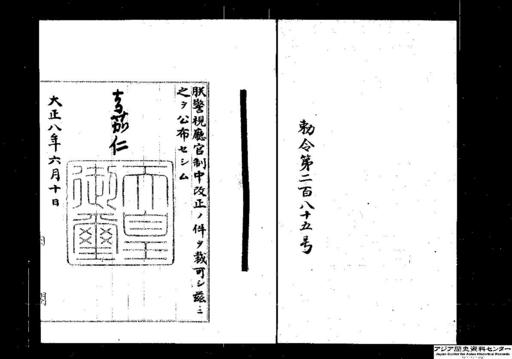 勅令第二百八十五号
朕警視廳官制中改正ノ件ヲ裁可シ茲ニ
之ヲ公布セシム
嘉仁
天皇御璽
大正八年六月十日
内閣
アジア歴史資料センター
Japan Center for Asian Historical Records